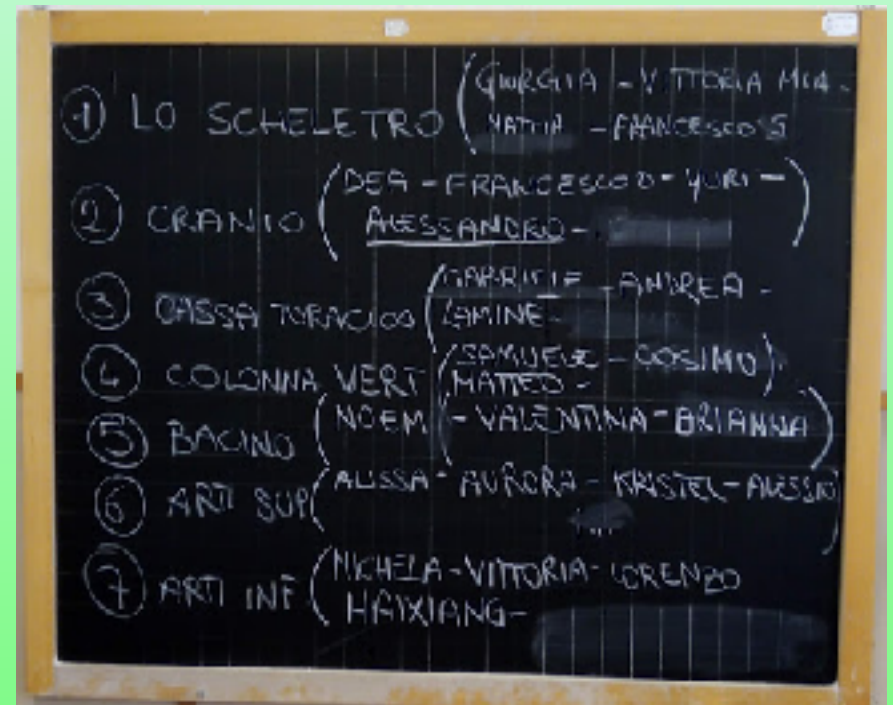 ① LO SCHELETRO (GIORGIA - VITTORIA MIA -
MATTIA - FRANCESCO S
② CRANIO (DEA - FRANCESCO D - YURI -
ALESSANDRO - )
③ CASSA TORACICO (GABRIELE - ANDREA -
LAMINE -
④ COLONNA VERT (SAMUELE - COSIMO)
MATTEO -
⑤ BACINO (NOEMI - VALENTINA - BRIANNA)
⑥ ARTI SUP (ALISSA - AURORA - KRISTEL - ALESSIO)
⑦ ARTI INF (MICHELA - VITTORIA - LORENZO
HAIXIANG -